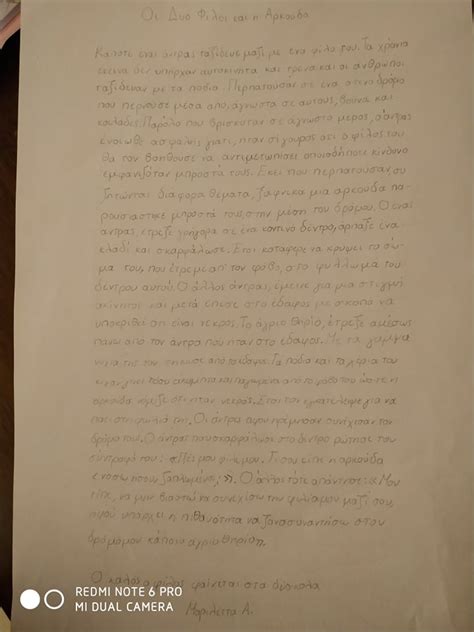 Οι Δυο Φίλοι και η Αρκούδα
Κάποτε ένας άντρας ταξίδευε μαζί με ένα φίλο του. Τα χρόνια
εκείνα δεν υπήρχαν αυτοκίνητα και τρένα και οι άνθρωποι
ταξίδευαν με τα πόδια. Περπατούσαν σε ένα στενό δρόμο
που περνούσε μέσα από άγνωστα σε αυτούς, βουνά και
κοιλάδες. Παρόλο που βρισκόταν σε άγνωστο μέρος, ο άντρας
ένοιωθε ασφαλής γιατί, ήταν σίγουρος ότι ο φίλος του
θα τον βοηθούσε να αντιμετωπίσει οποιοδήποτε κίνδυνο
εμφανιζόταν μπροστά τους. Εκεί που περπατούσαν συ
ζητώντας διάφορα θέματα, ξαφνικά μια αρκούδα πα
ρουσιάστηκε μπροστά τους, στην μέση του δρόμου. Ο ένας
άντρας, έτρεξε γρήγορα σε ένα κοντινό δέντρο, άρπαξε ένα
κλαδί και σκαρφάλωσε. Έτσι κατάφερε να κρύψει το σώ
μα του, που έτρεμε απ' τον φόβο, στο φύλλωμα του
δέντρου αυτού. Ο άλλος άντρας, έμεινε για μια στιγμή
ακίνητος και μετά έπεσε στο έδαφος με σκοπό να
υποκριθεί ότι είναι νεκρός. Το άγριο θηρίο, έτρεξε αμέσως
πάνω από τον άντρα που ήταν στο έδαφος. Με τα γαμψά
νύχια της τον σήκωσε από το έδαφος. Τα πόδια και τα χέρια του
είχαν γίνει τόσο άκαμπτα και παγωμένα από το φόβο που ώστε η
αρκούδα νόμιζε ότι ήταν νεκρός. Έτσι τον εγκατέλειψε για να
πάει στη φωλιά της. Οι άντρες αφού ηρέμησαν συνέχισαν τον
δρόμο τους. Ο άντρας που σκαρφάλωσε στο δέντρο ρώτησε τον
σύντροφό του: «Πες μου φίλε μου. Τι σου είπε η αρκούδα
όσο ήσουν ξαπλωμένος;». Ο άλλος τότε απάντησε: «Μου
είπε, να μην βιαστώ να συνεχίσω την φιλία μου μαζί σου,
αφού υπάρχει η πιθανότητα να ξανασυναντήσω στον
δρόμο μου κάποιο άγριο θηρίο».
Ο καλός ο φίλος φαίνεται στα δύσκολα
Μαριλέττα Α.
REDMI NOTE 6 PRO
MI DUAL CAMERA